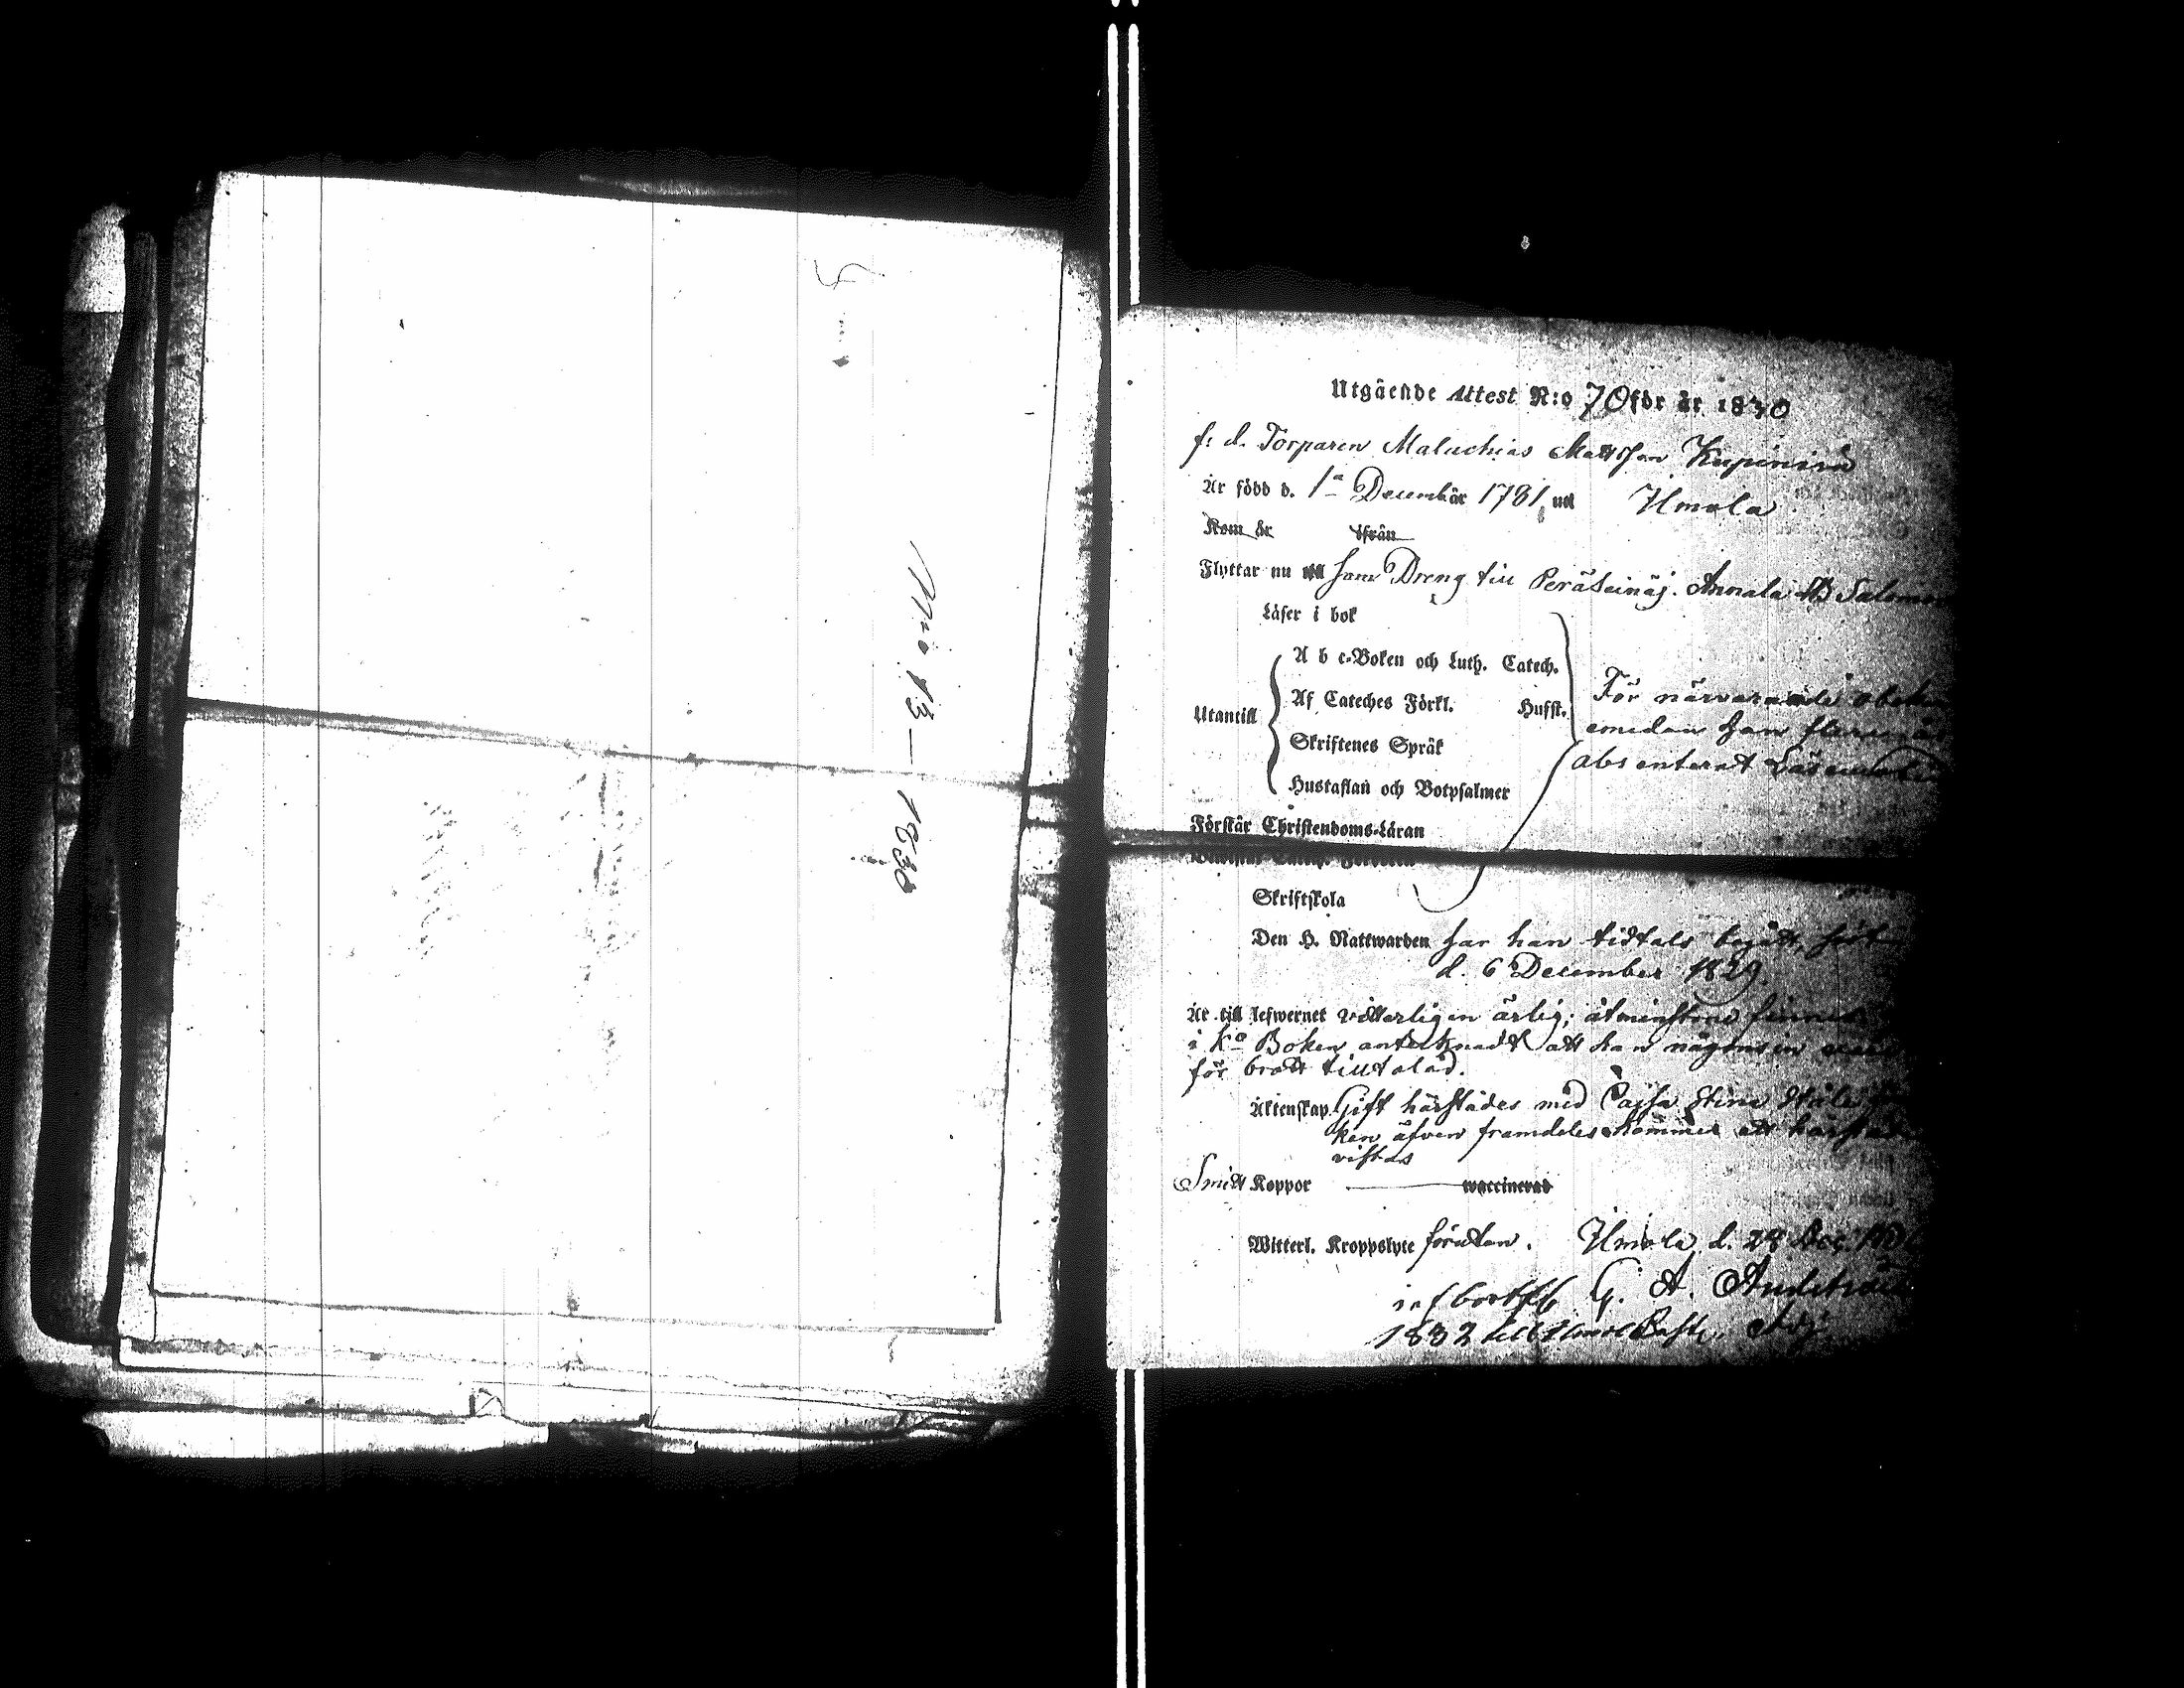 N:o 43 — 1830
Utgående Attest N:o 70 för år 1830
f: d. Torparen Malachias Mattsson
Är född d. 1a Decemb år 1781, uti Ilmola
Kom år ifrån
Flyttar nu till som Dreng till Peräseinäj. Annala Salomon
Läser i bok
A b c-Boken och Luth. Catech.
Af Cateches Förkl. Husst.
Utantill
Skriftenes Språk
Hustaflan och Botpsalmer
För närvarande
emedan han flere
absenterat
Förstår Christendoms-Läran
Skriftskola
Den H. Nattwarden har han tidtals begått,
d. 6 December 1829.
Är till lefwernet vitterligen ärlig; åtminstone finnes
i Ko Boken antecknadt att han någonsin
för brott tilltalad.
Äktenskap Gift härstädes med Cajsa Stina
ken äfven framdeles kommer att härstädes
vistas
Smitt Koppor waccinerad
Witterl. Kroppslyte förutan. Ilmola d. 28 Dec.
G. A.
1832 Adj.